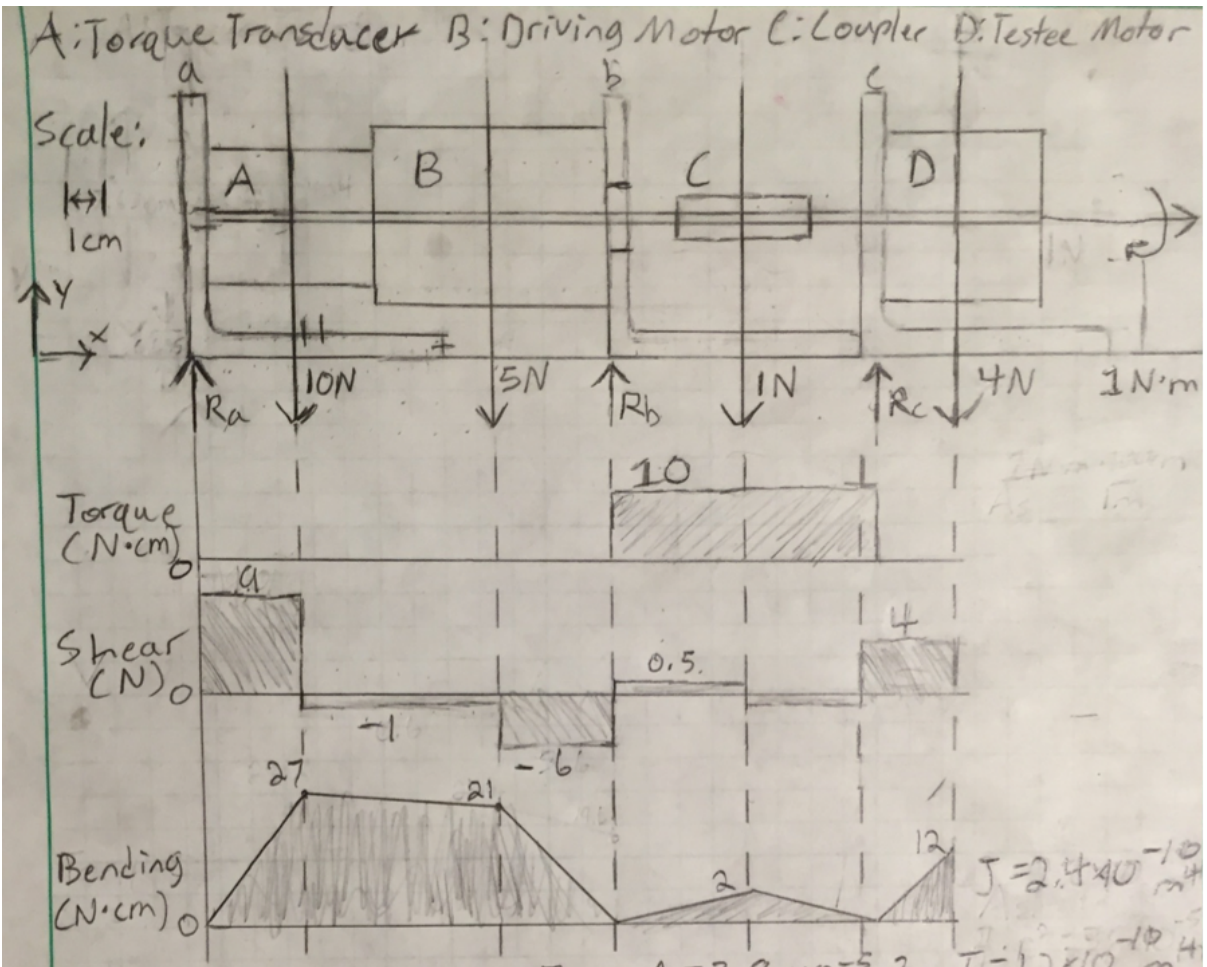 A: Torque Transducer B: Driving Motor C: Coupler D: Testee Motor
a b c
Scale:
A B C D
1cm
1N
Y
x
Ra 10N 5N Rb 1N Rc 4N 1N·m
10
Torque
(N·cm)
0
9
Shear
(N) 0
4
0.5
-1
-6
27
21
Bending
(N·cm) 0
2
12
J=2.4x10^-10 m^4